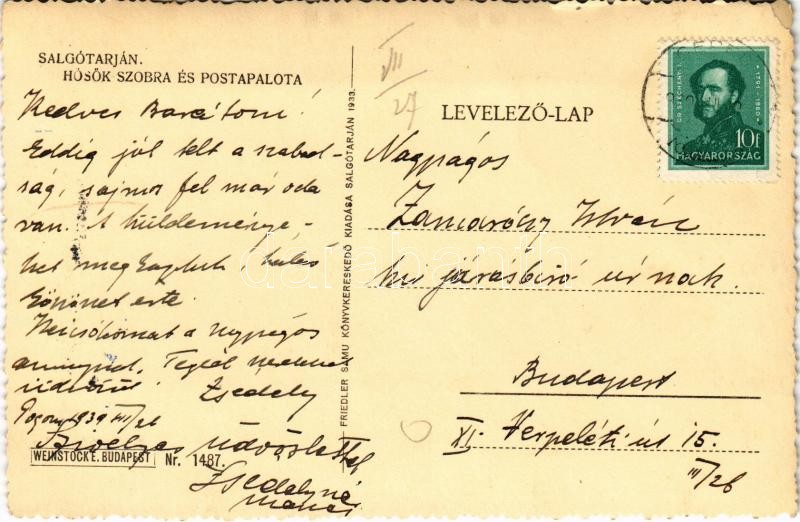 SALGÓTARJÁN.
HŐSÖK SZOBRA ÉS POSTAPALOTA
Kedves Barátom!
Eddig jól telt a szabad-
ság, sajnos fel már oda
van. A küldeménye-
ket megkaptuk, hálás
köszönet érte.
Kézcsókomat a nagyságos
asszonynak,
üdvözöl Zsedely
Pogony 1939 VII/26
Szívélyes üdvözlettel
Zsedelyné
WEINSTOCK E. BUDAPEST Nr. 1487.
FRIEDLER SAMU KÖNYVKERESKEDŐ KIADÁSA SALGÓTARJÁN 1933.
VII/27
LEVELEZŐ-LAP
GR. SZÉCHENYI I. 1791-1860
10f
MAGYARORSZÁG
Nagyságos
István
kir járásbíró úrnak.
Budapest
XI. Verpeléti út 15.
III/26
darabanth